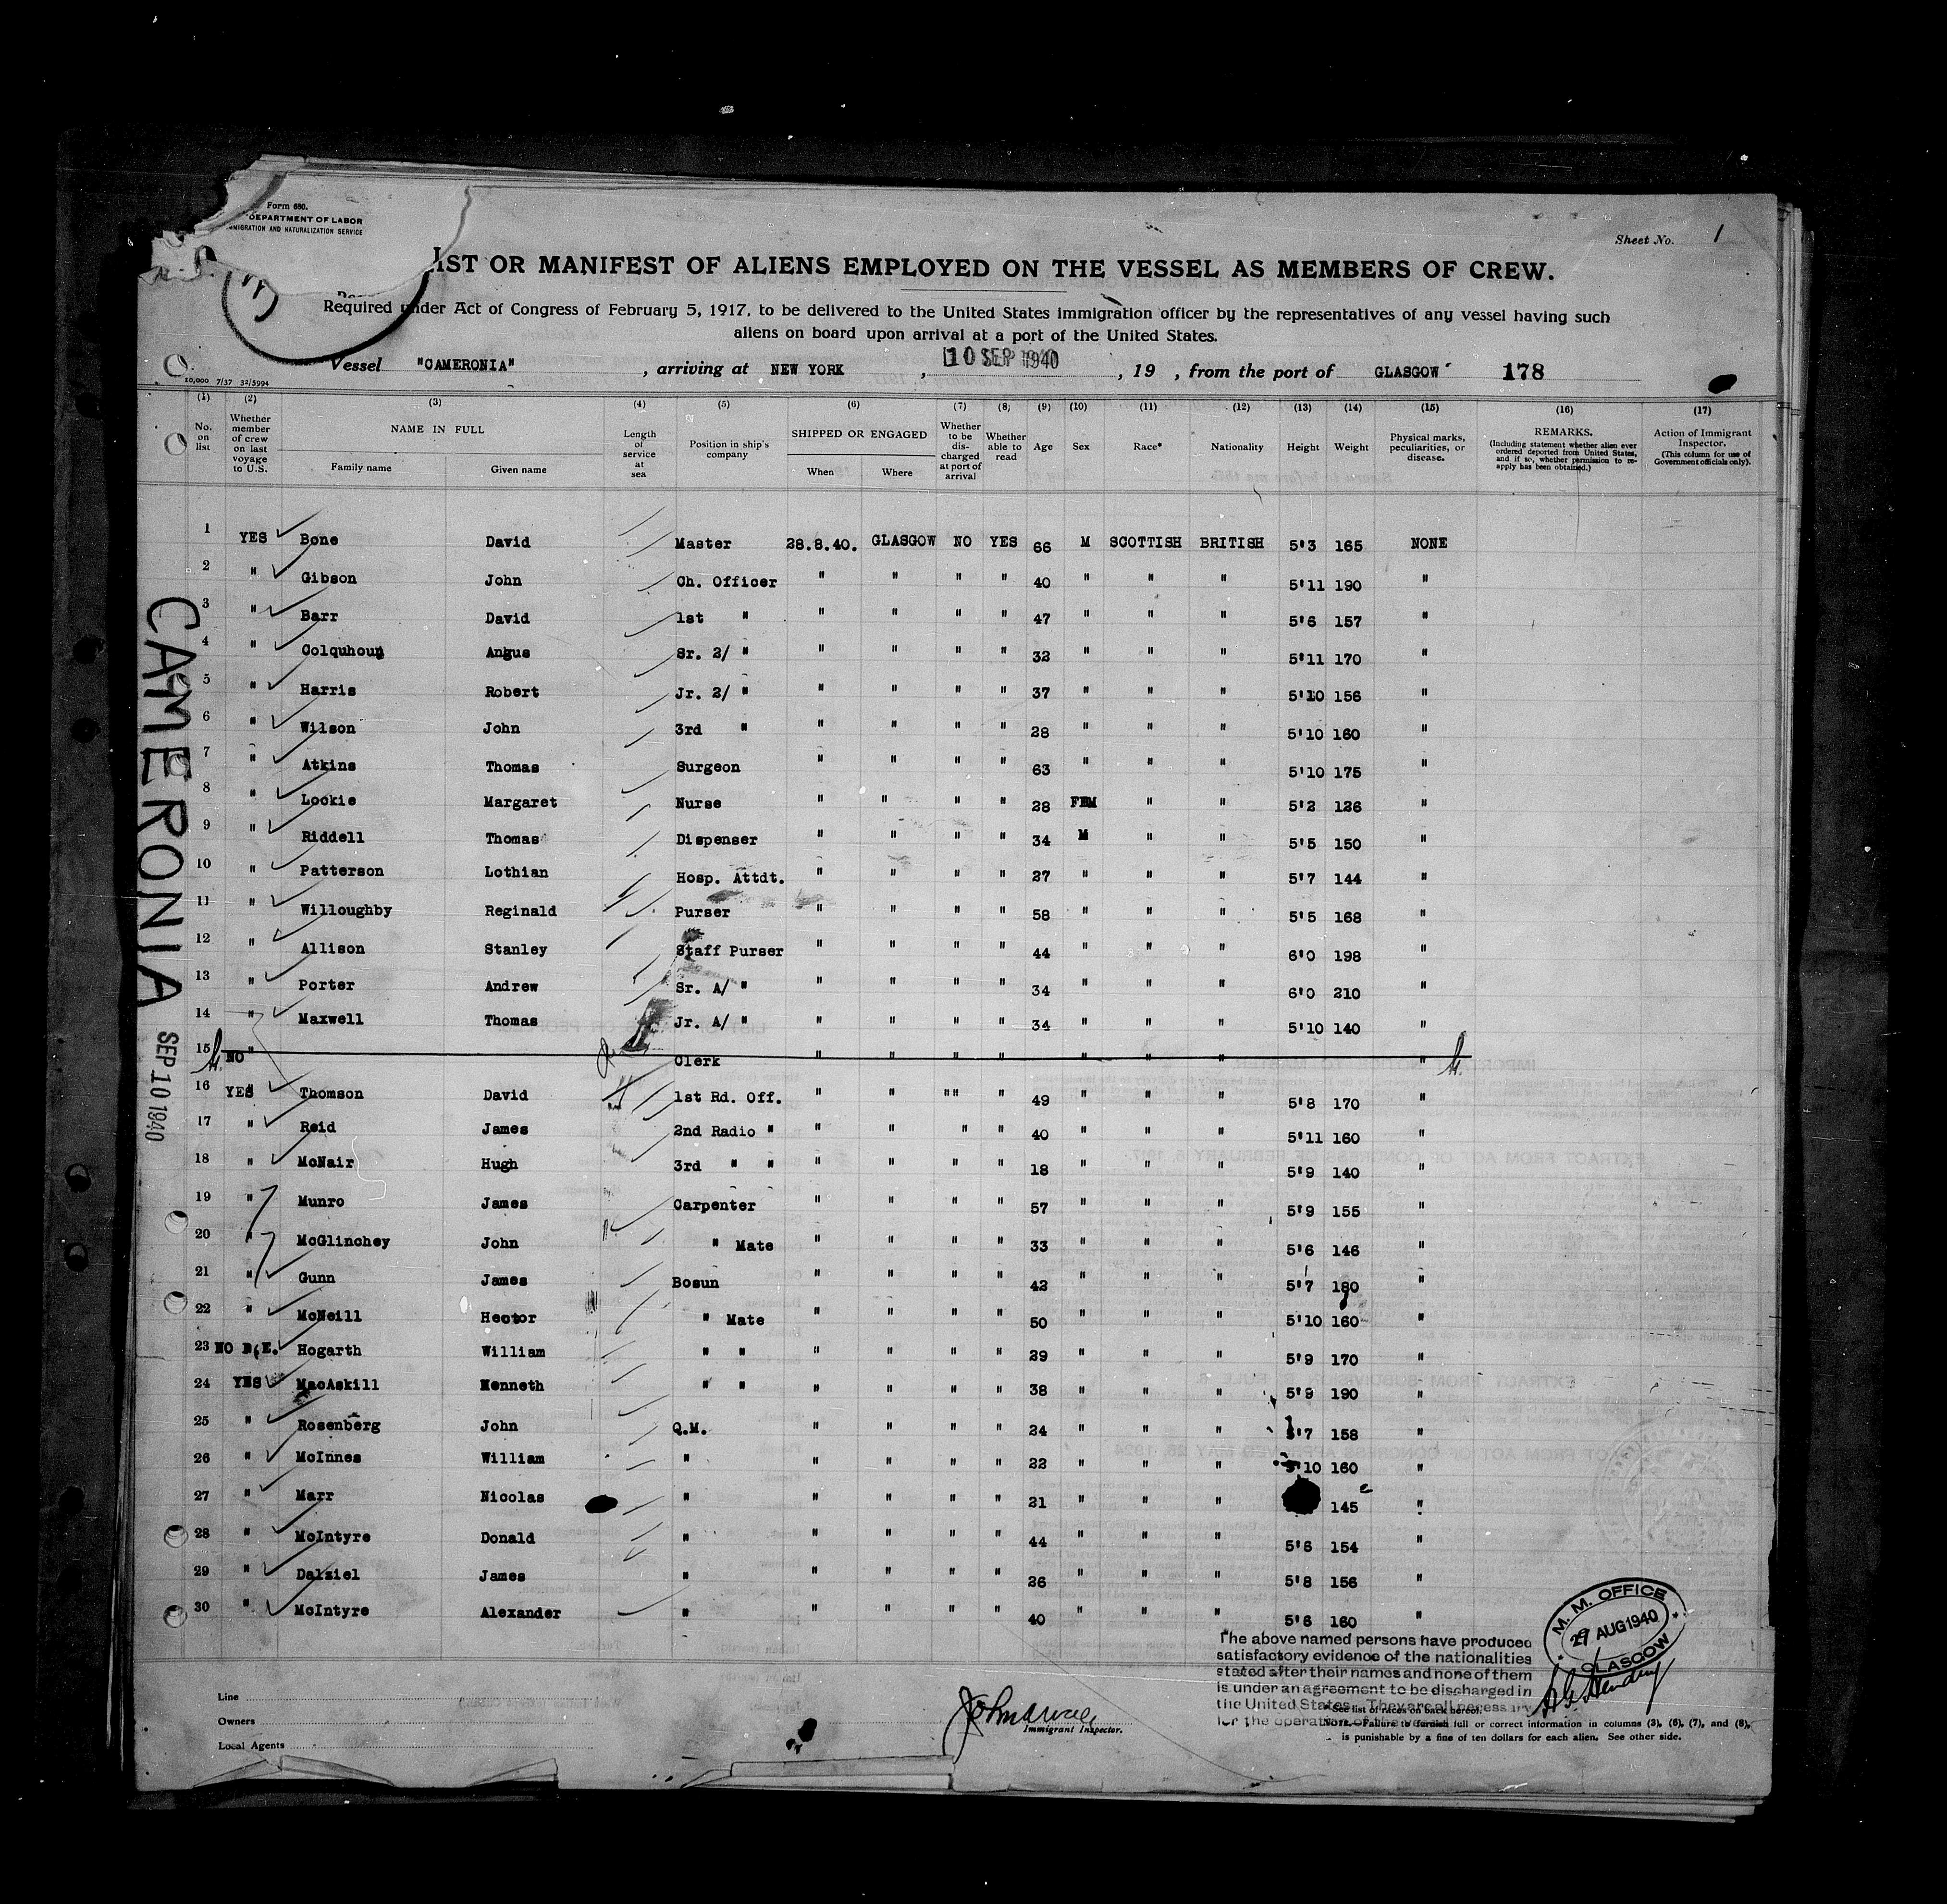 Form 680.
DEPARTMENT OF LABOR
IMMIGRATION AND NATURALIZATION SERVICE
Sheet No. 1
LIST OR MANIFEST OF ALIENS EMPLOYED ON THE VESSEL AS MEMBERS OF CREW.
Required under Act of Congress of February 5, 1917, to be delivered to the United States immigration officer by the representatives of any vessel having such
aliens on board upon arrival at a port of the United States.
Vessel "CAMERONIA", arriving at NEW YORK, 10 SEP 1940, 19 , from the port of GLASGOW 178
10,000 7/37 32/5994
(1) (2) (3) (4) (5) (6) (7) (8) (9) (10) (11) (12) (13) (14) (15) (16) (17)
No. on list
Whether member of crew on last voyage to U.S.
NAME IN FULL
Family name Given name
Length of service at sea
Position in ship's company
SHIPPED OR ENGAGED
When Where
Whether to be discharged at port of arrival
Whether able to read
Age
Sex
Race*
Nationality
Height
Weight
Physical marks, peculiarities, or disease.
REMARKS.
(Including statement whether alien ever ordered deported from United States, and if so, whether permission to reapply has been obtained.)
Action of Immigrant Inspector.
(This column for use of Government officials only).
1 YES Bone David Master 28.8.40. GLASGOW NO YES 66 M SCOTTISH BRITISH 5'3 165 NONE
2 " Gibson John Ch. Officer " " " " 40 " " " 5'11 190 "
3 " Barr David 1st " " " " " 47 " " " 5'6 157 "
4 " Colquhoun Angus Sr. 2/ " " " " " 32 " " " 5'11 170 "
5 " Harris Robert Jr. 2/ " " " " " 37 " " " 5'10 156 "
6 " Wilson John 3rd " " " " " 28 " " " 5'10 160 "
7 " Atkins Thomas Surgeon " " " " 63 " " " 5'10 175 "
8 " Lockie Margaret Nurse " " " " 28 FEM " " 5'2 126 "
9 " Riddell Thomas Dispenser " " " " 34 M " " 5'5 150 "
10 " Patterson Lothian Hosp. Attdt. " " " " 27 " " " 5'7 144 "
11 " Willoughby Reginald Purser " " " " 58 " " " 5'5 168 "
12 " Allison Stanley Staff Purser " " " " 44 " " " 6'0 198 "
13 " Porter Andrew Sr. A/ " " " " " 34 " " " 6'0 210 "
14 " Maxwell Thomas Jr. A/ " " " " " 34 " " " 5'10 140 "
15 NO " Clerk " " " " " " " "
16 YES Thomson David 1st Rd. Off. " " "" " 49 " " " 5'8 170 "
17 " Reid James 2nd Radio " " " " " 40 " " " 5'11 160 "
18 " McNair Hugh 3rd " " " " " " 18 " " " 5'9 140 "
19 " Munro James Carpenter " " " " 57 " " " 5'9 155 "
20 " McGlinchey John " Mate " " " " 33 " " " 5'6 146 "
21 " Gunn James Bosun " " " " 42 " " " 5'7 180 "
22 " McNeill Hector " Mate " " " " 50 " " " 5'10 160 "
23 NO Hogarth William " " " " " " 29 " " " 5'9 170 "
24 YES MacAskill Kenneth " " " " " " 38 " " " 5'9 190 "
25 " Rosenberg John Q.M. " " " " 24 " " " 5'7 158 "
26 " McInnes William " " " " " 22 " " " 5'10 160 "
27 " Marr Nicolas " " " " " 21 " " " 145 "
28 " McIntyre Donald " " " " " 44 " " " 5'6 154 "
29 " Dalziel James " " " " " 26 " " " 5'8 156 "
30 " McIntyre Alexander " " " " " 40 " " " 5'6 160 "
CAMERONIA
SEP 10 1940
The above named persons have produced
satisfactory evidence of the nationalities
stated after their names and none of them
is under an agreement to be discharged in
the United States. They are all necessary
for the operation of the
M. M. OFFICE
29 AUG 1940
GLASGOW
Line
Owners
Local Agents
Immigrant Inspector.
*See list of races on back hereof.
NOTE.—Failure to furnish full or correct information in columns (3), (6), (7), and (8),
is punishable by a fine of ten dollars for each alien. See other side.